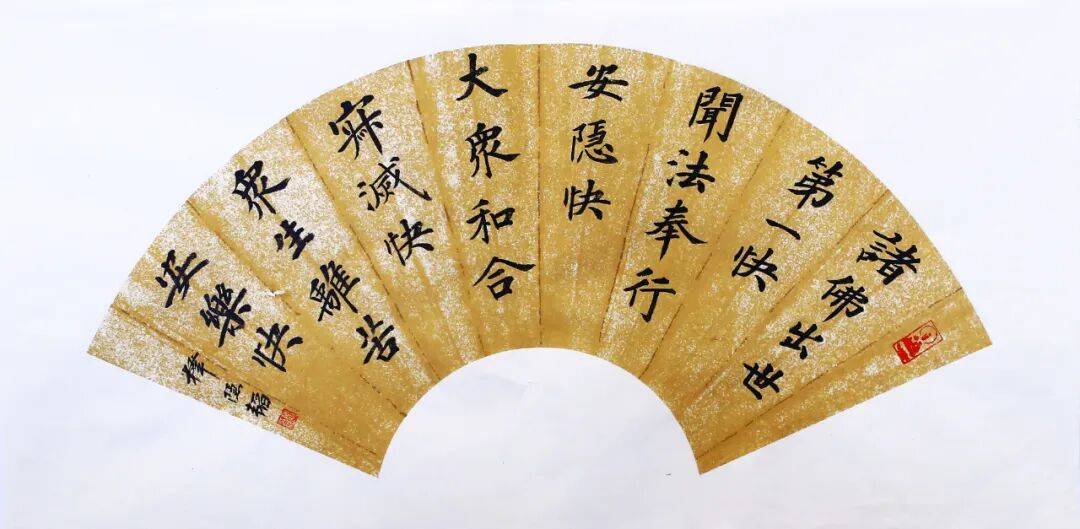 諸佛出世
第一快
聞法奉行
安隱快
大衆和合
寂滅快
衆生離苦
安樂快
釋隱